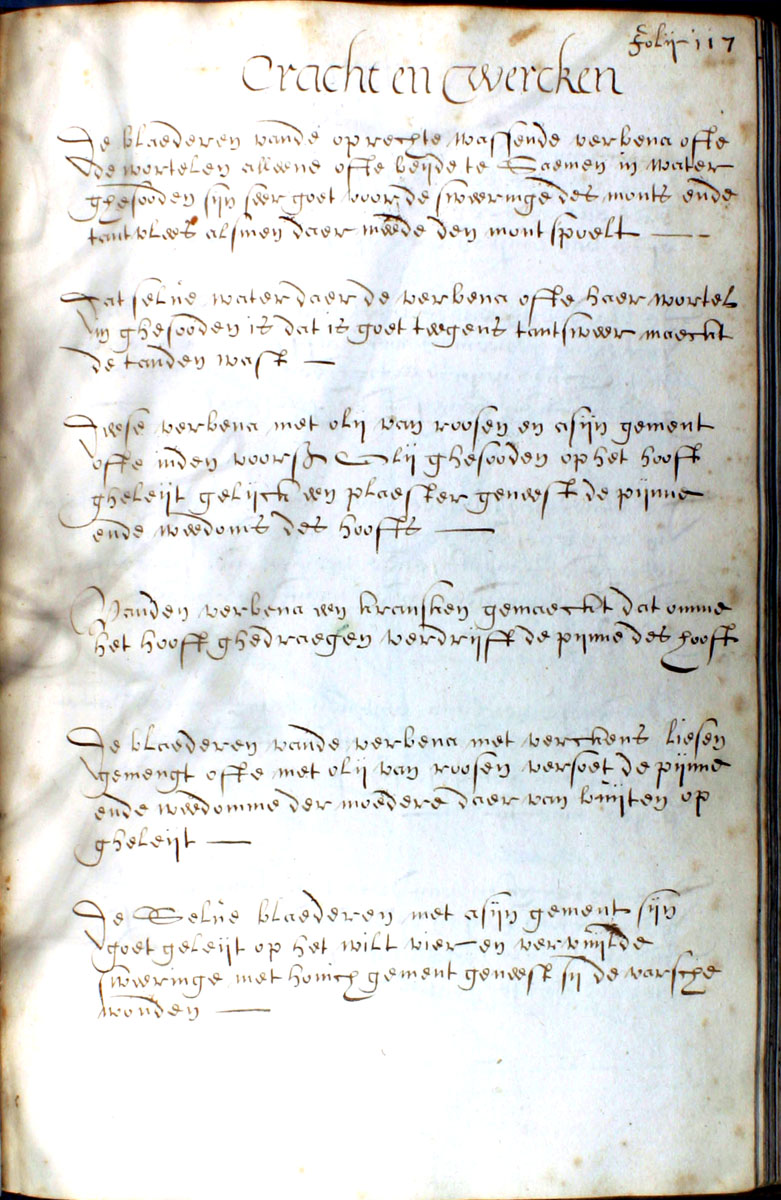 Folij 117
Cracht en Wercken
De blaederen vande oprechte wassende verbena ofte
de wortelen alleene ofte beijde te Saemen in water
ghesooden sijn seer goet voor de sweeringe des monts ende
tantvlees alsmen daer meede den mont spoelt
Dat selve water daer de verbena ofte haer wortel
in ghesooden is dat is goet teegens tantsweer maeckt
de tanden vast
Deese verbena met olij van roosen en asijn gement
ofte inden voors Olij ghesooden op het hooft
gheleijt gelijck een plaester geneest de pijnne
ende weedoms des hoofts
Vanden verbena een kransken gemaeckt dat omme
het hooft ghedraegen verdrijft de pijnne des hooft
De blaederen vande verbena met verckens liesen
gemengt ofte met olij van roosen versoet de pijnne
ende weedomme der moedere daer van buijten op
gheleijt
De Selve blaederen met asijn gement sijn
goet geleijt op het wilt vier en vervuilde
sweeringe met honich gement geneest sij de varsche
wonden